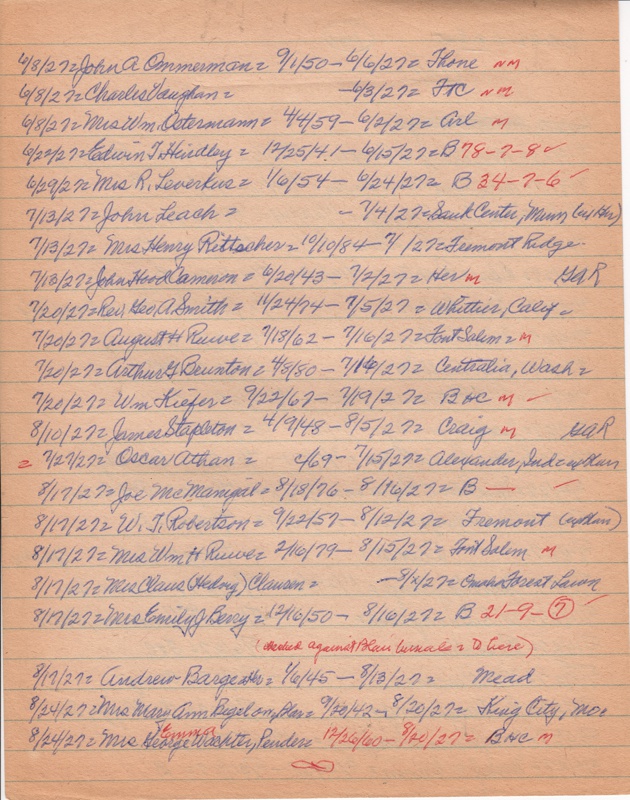 6/8/27 = John A Ommerman = 9/1/50 – 6/6/27 = Thone NM
6/8/27 = Charles Vaughan = – 6/3/27 = FtC NM
6/8/27 = Mrs Wm. Ostermann = 4/4/59 – 6/2/27 = Arl M
6/22/27 = Edwin T. Hindley = 12/25/41 – 6/15/27 = B 78-7-8 ✓
6/29/27 = Mrs R. Leverkus = 1/6/54 – 6/24/27 = B 34-7-6 ✓
7/13/27 = John Leach = – 7/4/27 = Sauk Center, Minn (ex Her)
7/13/27 = Mrs Henry Rittscher = 10/10/84 – 7/ /27 = Fremont Ridge.
7/13/27 = John Hood Cameron = 6/20/43 – 7/2/27 = Her M GAR
7/20/27 = Rev. Geo. A. Smith = 11/24/74 – 7/5/27 = Whittier, Calif =
7/20/27 = August H Ruwe = 7/18/62 – 7/16/27 = Font Salem = M
7/20/27 = Arthur G Brunton = 4/8/80 – 7/14/27 = Centralia, Wash =
7/20/27 = Wm Kiefer = 9/22/67 – 7/19/27 = BHC M –
8/10/27 = James Stapleton = 4/9/48 – 8/5/27 = Craig M GAR
= 7/27/27 = Oscar Athan = c/69 – 7/15/27 = Alexander, Ind =
8/17/27 = Joe McManigal = 8/18/76 – 8/16/27 = B — ✓
8/17/27 = W. T. Robertson = 9/22/57 – 8/12/27 = Fremont (ex Blair)
8/17/27 = Mrs Wm H Ruwe = 2/16/79 – 8/15/27 = Font Salem M
8/17/27 = Mrs Claus (Hedwig) Clausen = – 8/x/27 = Omaha Forest Lawn
8/17/27 = Mrs Emily J Berry = 12/16/50 – 8/16/27 = B 21-9-7 ✓
(checked against Blair burials = to here)
8/17/27 = Andrew Barge = 1/6/45 – 8/13/27 = Mead
8/24/27 = Mrs Mary Ann Bigelow, = 9/20/42 – 8/20/27 = King City, Mo =
8/24/27 = Mrs George Emma Wachter, Pender = 12/26/60 – 8/20/27 = BHC M